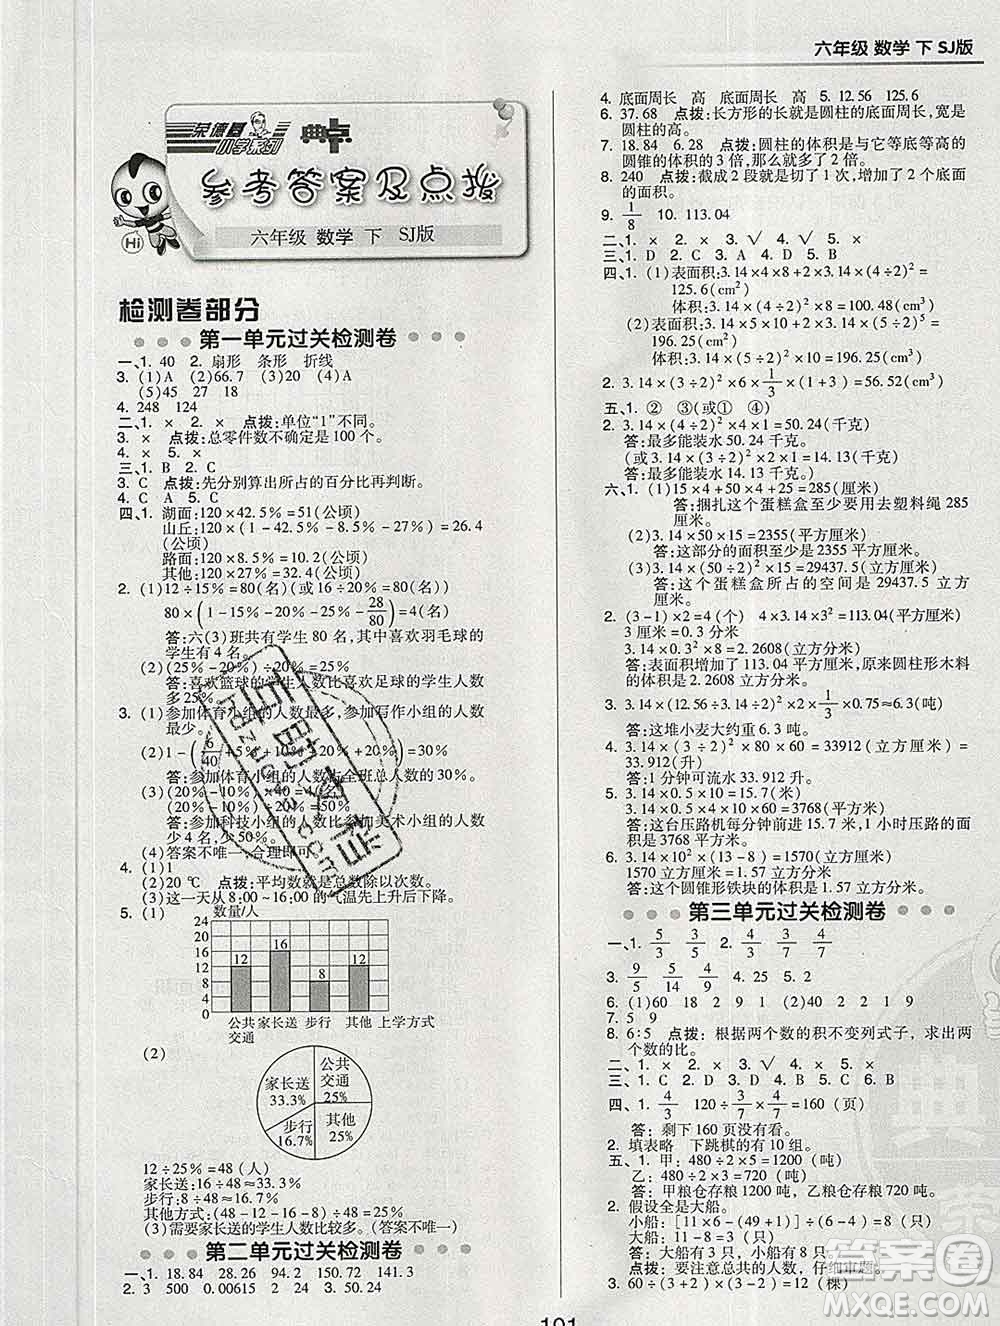 六年级 数学 下 SJ版
荣德基
小学系列
典点
参考答案及点拨
Hi
六年级 数学 下 SJ版
检测卷部分
第一单元过关检测卷
一、1. 40 2. 扇形 条形 折线
3. (1)A (2)66.7 (3)20 (4)A
(5)45 27 18
4. 248 124
二、1. × 2. × 点拨:单位“1”不同。
3. × 点拨:总零件数不确定是 100 个。
4. × 5. ×
三、1. B 2. C
3. C 点拨:先分别算出所占的百分比再判断。
4. C A 5. C
四、1. 湖面:120×42.5%=51(公顷)
山丘:120×(1-42.5%-8.5%-27%)=26.4
(公顷)
路面:120×8.5%=10.2(公顷)
其他:120×27%=32.4(公顷)
2. (1)12÷15%=80(名)(或16÷20%=80)
80×(1-15%-20%-25%-28/80)=4(名)
答:六(3)班共有学生 80 名,其中喜欢羽毛球的
学生有 4 名。
(2)(25%-20%)÷20%=25%
答:喜欢篮球的学生人数比喜欢足球的学生人数
多25%。
3. (1)参加体育小组的人数最多,参加写作小组的人数
最少。
(2)1-(6/40+5%+10%+20%+20%)=30%
答:参加体育小组的人数占全班总人数的 30%。
(3)(20%-10%)×40=4(名)
(20%-10%)÷20%=50%
答:参加科技小组的人数比参加美术小组的人数
少 4 名,少 50%。
(4)答案不唯一,合理即可。
4. (1)1
(2)20 ℃ 点拨:平均数就是总数除以次数。
(3)这一天从 8:00~16:00 的气温先上升后下降。
5. (1) 数量/人
24
20
16
12
8
4
0
12 16 8 12
公共交通 家长送 步行 其他 上学方式
(2)
公共交通 25%
家长送 33.3%
步行 16.7%
其他 25%
12÷25%=48(人)
家长送:16÷48≈33.3%
步行:8÷48≈16.7%
其他方式:(48-12-16-8)÷48=25%
(3)需要家长送的学生人数比较多。(答案不唯一)
第二单元过关检测卷
一、1. 18.84 28.26 94.2 150.72 141.3
2. 3 500 0.00615 2 24 3. 50.24
4. 底面周长 高 底面周长 高 5. 12.56 125.6
6. 37.68 点拨:长方形的长就是圆柱的底面周长,宽是
圆柱的高。
7. 18.84 6.28 点拨:圆柱的体积是与它等底等高的
圆锥的体积的 3 倍,那么比它多了 2 倍。
8. 240 点拨:截成 2 段就是切了 1 次,增加了 2 个底面
的面积。
9. 1/8 10. 113.04
二、1. × 2. × 3. √ 4. × 5. ×
三、1. C 2. D 3. A 4. D 5. B
四、1. (1)表面积:3.14×4×8+2×3.14×(4÷2)²=
125.6(cm²)
体积:3.14×(4÷2)²×8=100.48(cm³)
(2)表面积:3.14×5×10+2×3.14×(5÷2)²=
196.25(cm²)
体积:3.14×(5÷2)²×10=196.25(cm³)
2. 3.14×(3÷2)²×6×1/3×(1+3)=56.52(cm³)
五、1. ② ③(或① ④)
2. 3.14×(4÷2)²×4×1=50.24(千克)
答:最多能装水 50.24 千克。
(或 3.14×(3÷2)²×2×1=14.13(千克)
答:最多能装水 14.13 千克。)
六、1. (1)15×4+50×4+25=285(厘米)
答:捆扎这个蛋糕盒至少要用去塑料绳 285
厘米。
(2)3.14×50×15=2355(平方厘米)
答:这部分的面积至少是 2355 平方厘米。
(3)3.14×(50÷2)²×15=29437.5(立方厘米)
答:这个蛋糕盒所占的空间是 29437.5 立方
厘米。
2. (3-1)×2=4(个) 4×3.14×3²=113.04(平方厘米)
3 厘米=0.3 分米
3.14×0.3²×8=2.2608(立方分米)
答:表面积增加了 113.04 平方厘米,原来圆柱形木料
的体积是 2.2608 立方分米。
3. 3.14×(12.56÷3.14÷2)²×2×1/3×0.75≈6.3(吨)
答:这堆小麦大约重 6.3 吨。
4. 3.14×(2÷2)²×3×60×60=33912(立方厘米)=
33.912(升)
答:1 分钟可流水 33.912 升。
5. 3.14×0.5×2×5=15.7(米)
3.14×0.5×10×4×60=3768(平方米)
答:这台压路机每分钟前进 15.7 米,1 小时压路的面
积是 3768 平方米。
6. 3.14×10²×(13-8)=1570(立方厘米)
1570 立方厘米=1.57 立方分米
答:这个圆锥形铁块的体积是 1.57 立方分米。
第三单元过关检测卷
一、1. 5/3 3/5 2. 4/3 3/4
3. 9/5 5/14 4. 25 5. 2
6. (1)60 18 2 9 1 (2)40 22 2 9 1
7. 5 9
8. 6:5 点拨:根据两个数的积不变列式子,求出两
个数的比。
二、1. × 2. × 3. √ 4. × 5. ×
三、1. C 2. D 3. B 4. C 5. A
四、1. 4/3 120÷3/7×4/7=160(页)
答:剩下 160 页没有看。
2. 填表略 下跳棋的有 10 组。
五、1. 甲:480÷2×5=1200(吨)
乙:480÷2×3=720(吨)
答:甲粮仓存粮 1200 吨,乙粮仓存粮 720 吨。
2. 假设全是大船。
小船:[11×6-(49+1)]÷(6-4)=8(只)
大船:11-8=3(只)
答:大船有 3 只,小船有 8 只。
点拨:要注意总共的人数,仔细审题。
3. 60÷(3+2)×(3-2)=12(棵)
101
答案圈
MXQE.COM